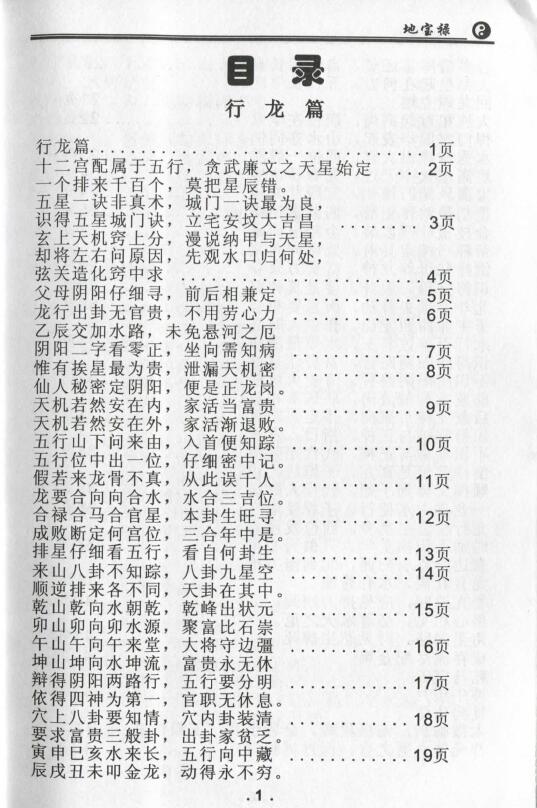 地宝禄
目录
行龙篇
行龙篇..............................1页
十二宫配属于五行，贪武廉文之天星始定 ...2页
一个排来千百个，莫把星辰错。
五星一诀非真术，城门一诀最为良，
识得五星城门诀，立宅安坟大吉昌 .......3页
玄上天机窍上分，漫说纳甲与天星，
却将左右问原因，先观水口归何处，
弦关造化窍中求 ....................4页
父母阴阳仔细寻，前后相兼定 ...........5页
龙行出卦无官贵，不用劳心力 ...........6页
乙辰交加水路，未免悬河之厄
阴阳二字看零正，坐向需知病 ...........7页
惟有挨星最为贵，泄漏天机密 ...........8页
仙人秘密定阴阳，便是正龙岗。
天机若然安在内，家活当富贵 ...........9页
天机若然安在外，家活渐退败。
五行山下问来由，入首便知踪 ..........10页
五行位中出一位，仔细密中记。
假若来龙骨不真，从此误千人 ..........11页
龙要合向向合水，水合三吉位。
合禄合马合官星，本卦生旺寻 ..........12页
成败断定何宫位，三合年中是。
排星仔细看五行，看自何卦生 ..........13页
来山八卦不知踪，八卦九星空 ..........14页
顺逆排来各不同，天卦在其中。
乾山乾向水朝乾，乾峰出状元 ..........15页
卯山卯向卯水源，聚富比石崇
午山午向午来堂，大将守边疆 ..........16页
坤山坤向水坤流，富贵永无休
辩得阴阳两路行，五行要分明 ..........17页
依得四神为第一，官职无休息。
穴上八卦要知情，穴内卦装清 ..........18页
要求富贵三般卦，出卦家贫乏。
寅申巳亥水来长，五行向中藏 ..........19页
辰戌丑未叩金龙，动得永不穷。
. 1 .